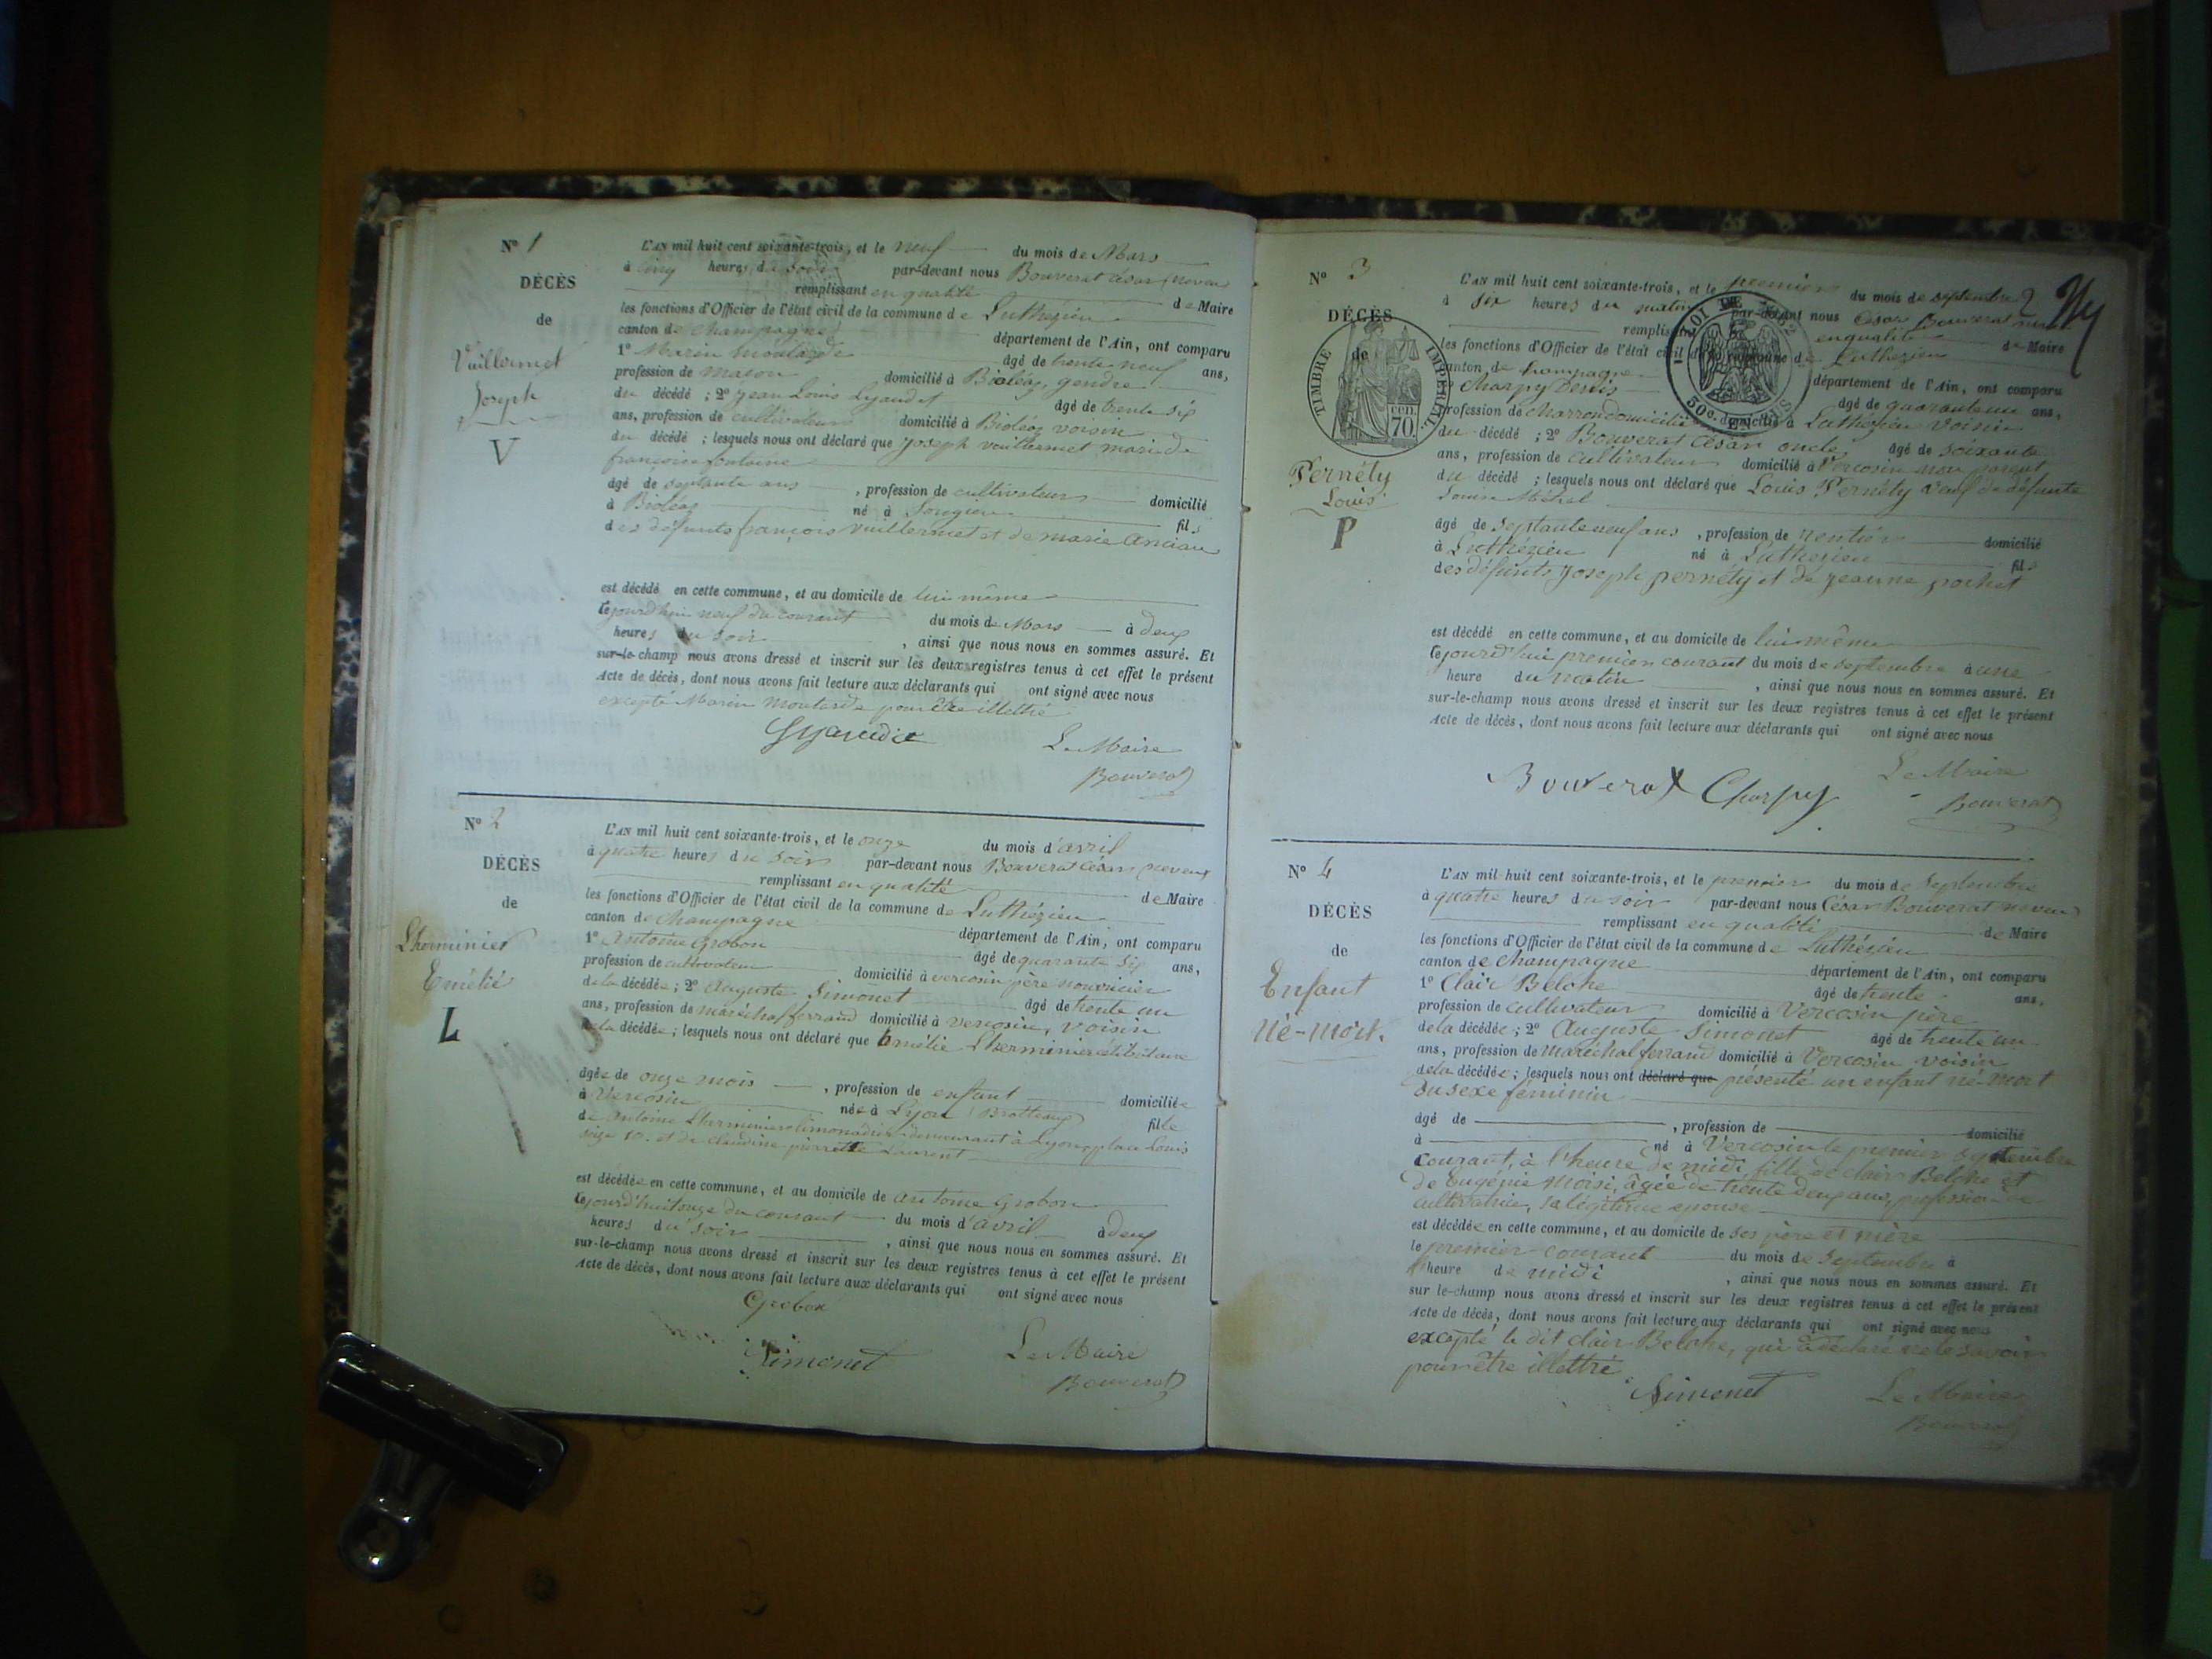 N° 1
DÉCÈS
de
Vuillermet
Joseph
V
L'AN mil huit cent soixante-trois, et le neuf du mois de Mars
à cinq heures du soir par-devant nous Bouverat César neveu
remplissant en qualité de Maire
les fonctions d'Officier de l'état civil de la commune de Luthézieu
canton de Champagne département de l'Ain, ont comparu
1° Marin Moutarde âgé de trente neuf ans,
profession de maçon domicilié à Bioléaz, gendre
du décédé ; 2° Jean Louis Lyaudet âgé de trente six
ans, profession de cultivateur domicilié à Bioléaz voisin
du décédé ; lesquels nous ont déclaré que Joseph vuillermet mari de
françoise fontaine
âgé de septante ans , profession de cultivateur domicilié
à Bioléaz né à Songieu fils
des défunts françois Vuillermet et de marie Anciau
est décédé en cette commune, et au domicile de lui même
Cejourd'hui neuf du courant du mois de Mars à deux
heures du soir , ainsi que nous nous en sommes assuré. Et
sur-le-champ nous avons dressé et inscrit sur les deux registres tenus à cet effet le présent
Acte de décès, dont nous avons fait lecture aux déclarants qui ont signé avec nous
excepté Marin Moutarde pour être illettré
Lyaudet Le Maire
Bouverat
N° 2
DÉCÈS
de
Lherminier
Emélie
L
L'AN mil huit cent soixante-trois, et le onze du mois d'avril
à quatre heures du soir par-devant nous Bouverat César neveu
remplissant en qualité de Maire
les fonctions d'Officier de l'état civil de la commune de Luthézieu
canton de Champagne département de l'Ain, ont comparu
1° Antoine Grobon âgé de quarante six ans,
profession de cultivateur domicilié à vercosin père nourricier
de la décédée ; 2° Auguste Simonet âgé de trente un
ans, profession de maréchal ferrand domicilié à vercosin, voisin
de la décédée ; lesquels nous ont déclaré que Emélie Lherminier célibataire
âgée de onze mois , profession de enfant domiciliée
à Vercosin née à Lyon (Brotteaux) fille
de Antoine Lherminier limonadier demeurant à Lyon, place Louis
seize 10. et de Claudine pierrette Laurent
est décédée en cette commune, et au domicile de antoine Grobon
Cejourd'hui onze du courant du mois d'avril à deux
heures du soir , ainsi que nous nous en sommes assuré. Et
sur-le-champ nous avons dressé et inscrit sur les deux registres tenus à cet effet le présent
Acte de décès, dont nous avons fait lecture aux déclarants qui ont signé avec nous
Grobon
Simonet Le Maire
Bouverat
2
N° 3
DÉCÈS
de
TIMBRE IMPÉRIAL
70 cen.
LOI DE 1862
50c.
Pernéty
Louis
P
L'AN mil huit cent soixante-trois, et le premier du mois de septembre
à six heures du matin par-devant nous César Bouverat neveu
remplissant en qualité de Maire
les fonctions d'Officier de l'état civil de la commune de Luthézieu
canton de Champagne département de l'Ain, ont comparu
1° Charpy Denis âgé de quarante un ans,
profession de Charron domicilié à Luthézieu voisin
du décédé ; 2° Bouverat César oncle, âgé de soixante
ans, profession de cultivateur domicilié à Vercosin non parent
du décédé ; lesquels nous ont déclaré que Louis Pernéty veuf de défunte
Louise Métral
âgé de septante neuf ans , profession de rentier domicilié
à Luthézieu né à Luthézieu fils
des défunts Joseph pernéty et de Jeanne pochet
est décédé en cette commune, et au domicile de lui même
Cejourd'hui premier courant du mois de septembre à une
heure du matin , ainsi que nous nous en sommes assuré. Et
sur-le-champ nous avons dressé et inscrit sur les deux registres tenus à cet effet le présent
Acte de décès, dont nous avons fait lecture aux déclarants qui ont signé avec nous
Bouverat Charpy Le Maire
Bouverat
N° 4
DÉCÈS
de
Enfant
Né-mort.
L'AN mil huit cent soixante-trois, et le premier du mois de Septembre
à quatre heures du soir par-devant nous César Bouverat neveu
remplissant en qualité de Maire
les fonctions d'Officier de l'état civil de la commune de Luthézieu
canton de Champagne département de l'Ain, ont comparu
1° Clair Belche âgé de trente ans,
profession de cultivateur domicilié à Vercosin père
de la décédée ; 2° Auguste Simonet âgé de trente un
ans, profession de Maréchal ferrand domicilié à Vercosin voisin
de la décédée ; lesquels nous ont déclaré que présenté un enfant né-mort
du sexe féminin
âgé de , profession de domicilié
à né à Vercosin le premier septembre
courant, à l'heure de midi, fille de clair Belche et
de Eugénie Moisi, âgée de trente deux ans, profession de
cultivatrice, sa légitime épouse
est décédée en cette commune, et au domicile de ses père et mère
le premier courant du mois de Septembre à
l'heure de midi , ainsi que nous nous en sommes assuré. Et
sur-le-champ nous avons dressé et inscrit sur les deux registres tenus à cet effet le présent
Acte de décès, dont nous avons fait lecture aux déclarants qui ont signé avec nous
excepté le dit clair Belche, qui a déclaré ne le savoir
pour être illettré
Simonet Le Maire
Bouverat